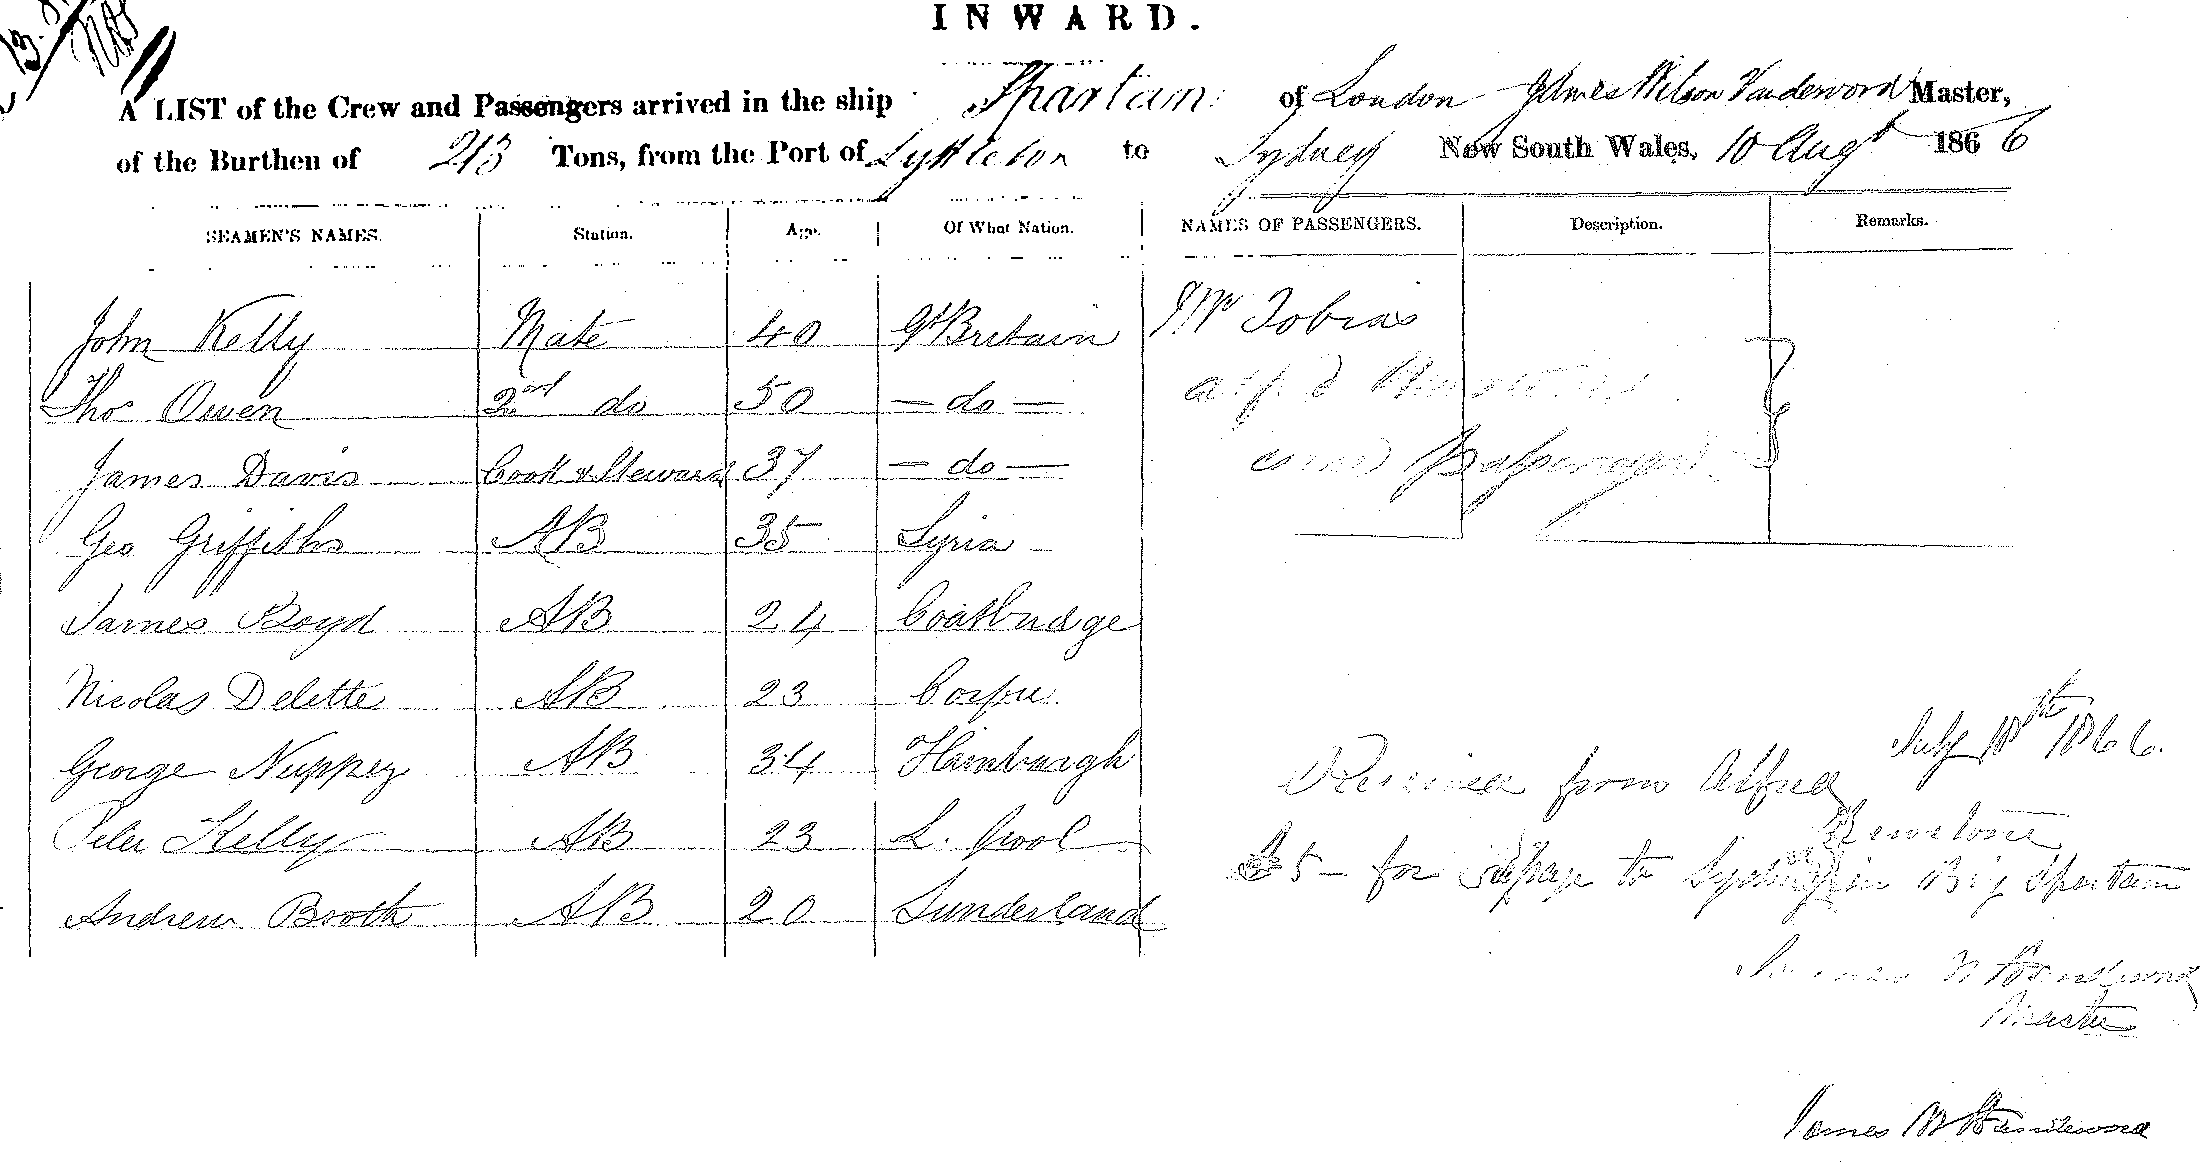 INWARD.
A LIST of the Crew and Passengers arrived in the ship Spartan of London James Wilson Vandervord Master,
of the Burthen of 213 Tons, from the Port of Lyttleton to Sydney New South Wales, 10 Augt 1866
SEAMEN'S NAMES. Station. Age. Of What Nation. NAMES OF PASSENGERS. Description. Remarks.
John Kelly Mate 40 Gt Britain Mr Tobias
Thos Owen 2nd do 50 — do — Alfd
James Davis Cook & Steward 37 — do — Passenger
Geo Griffiths AB 35 Syria
James Boyd AB 24 Coatbridge
Nicolas Delette AB 23 Corfu
George Nuppey AB 34 Hamburgh
Peter Kelly AB 23 L. pool
Andrew Broth AB 20 Sunderland
July 18th 1866.
Received from Alfred
£5 – for passage to Sydney in Brig Spartan
Master
James W Vandervord